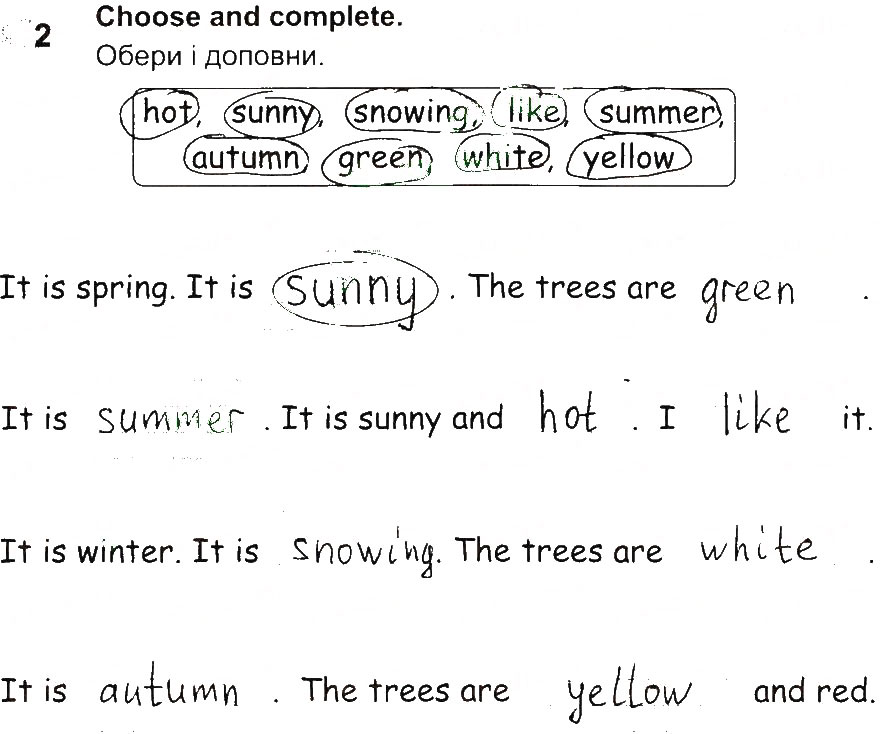 2 Choose and complete.
Обери і доповни.
hot, sunny, snowing, like, summer,
autumn, green, white, yellow
It is spring. It is sunny. The trees are green.
It is summer. It is sunny and hot. I like it.
It is winter. It is snowing. The trees are white.
It is autumn. The trees are yellow and red.